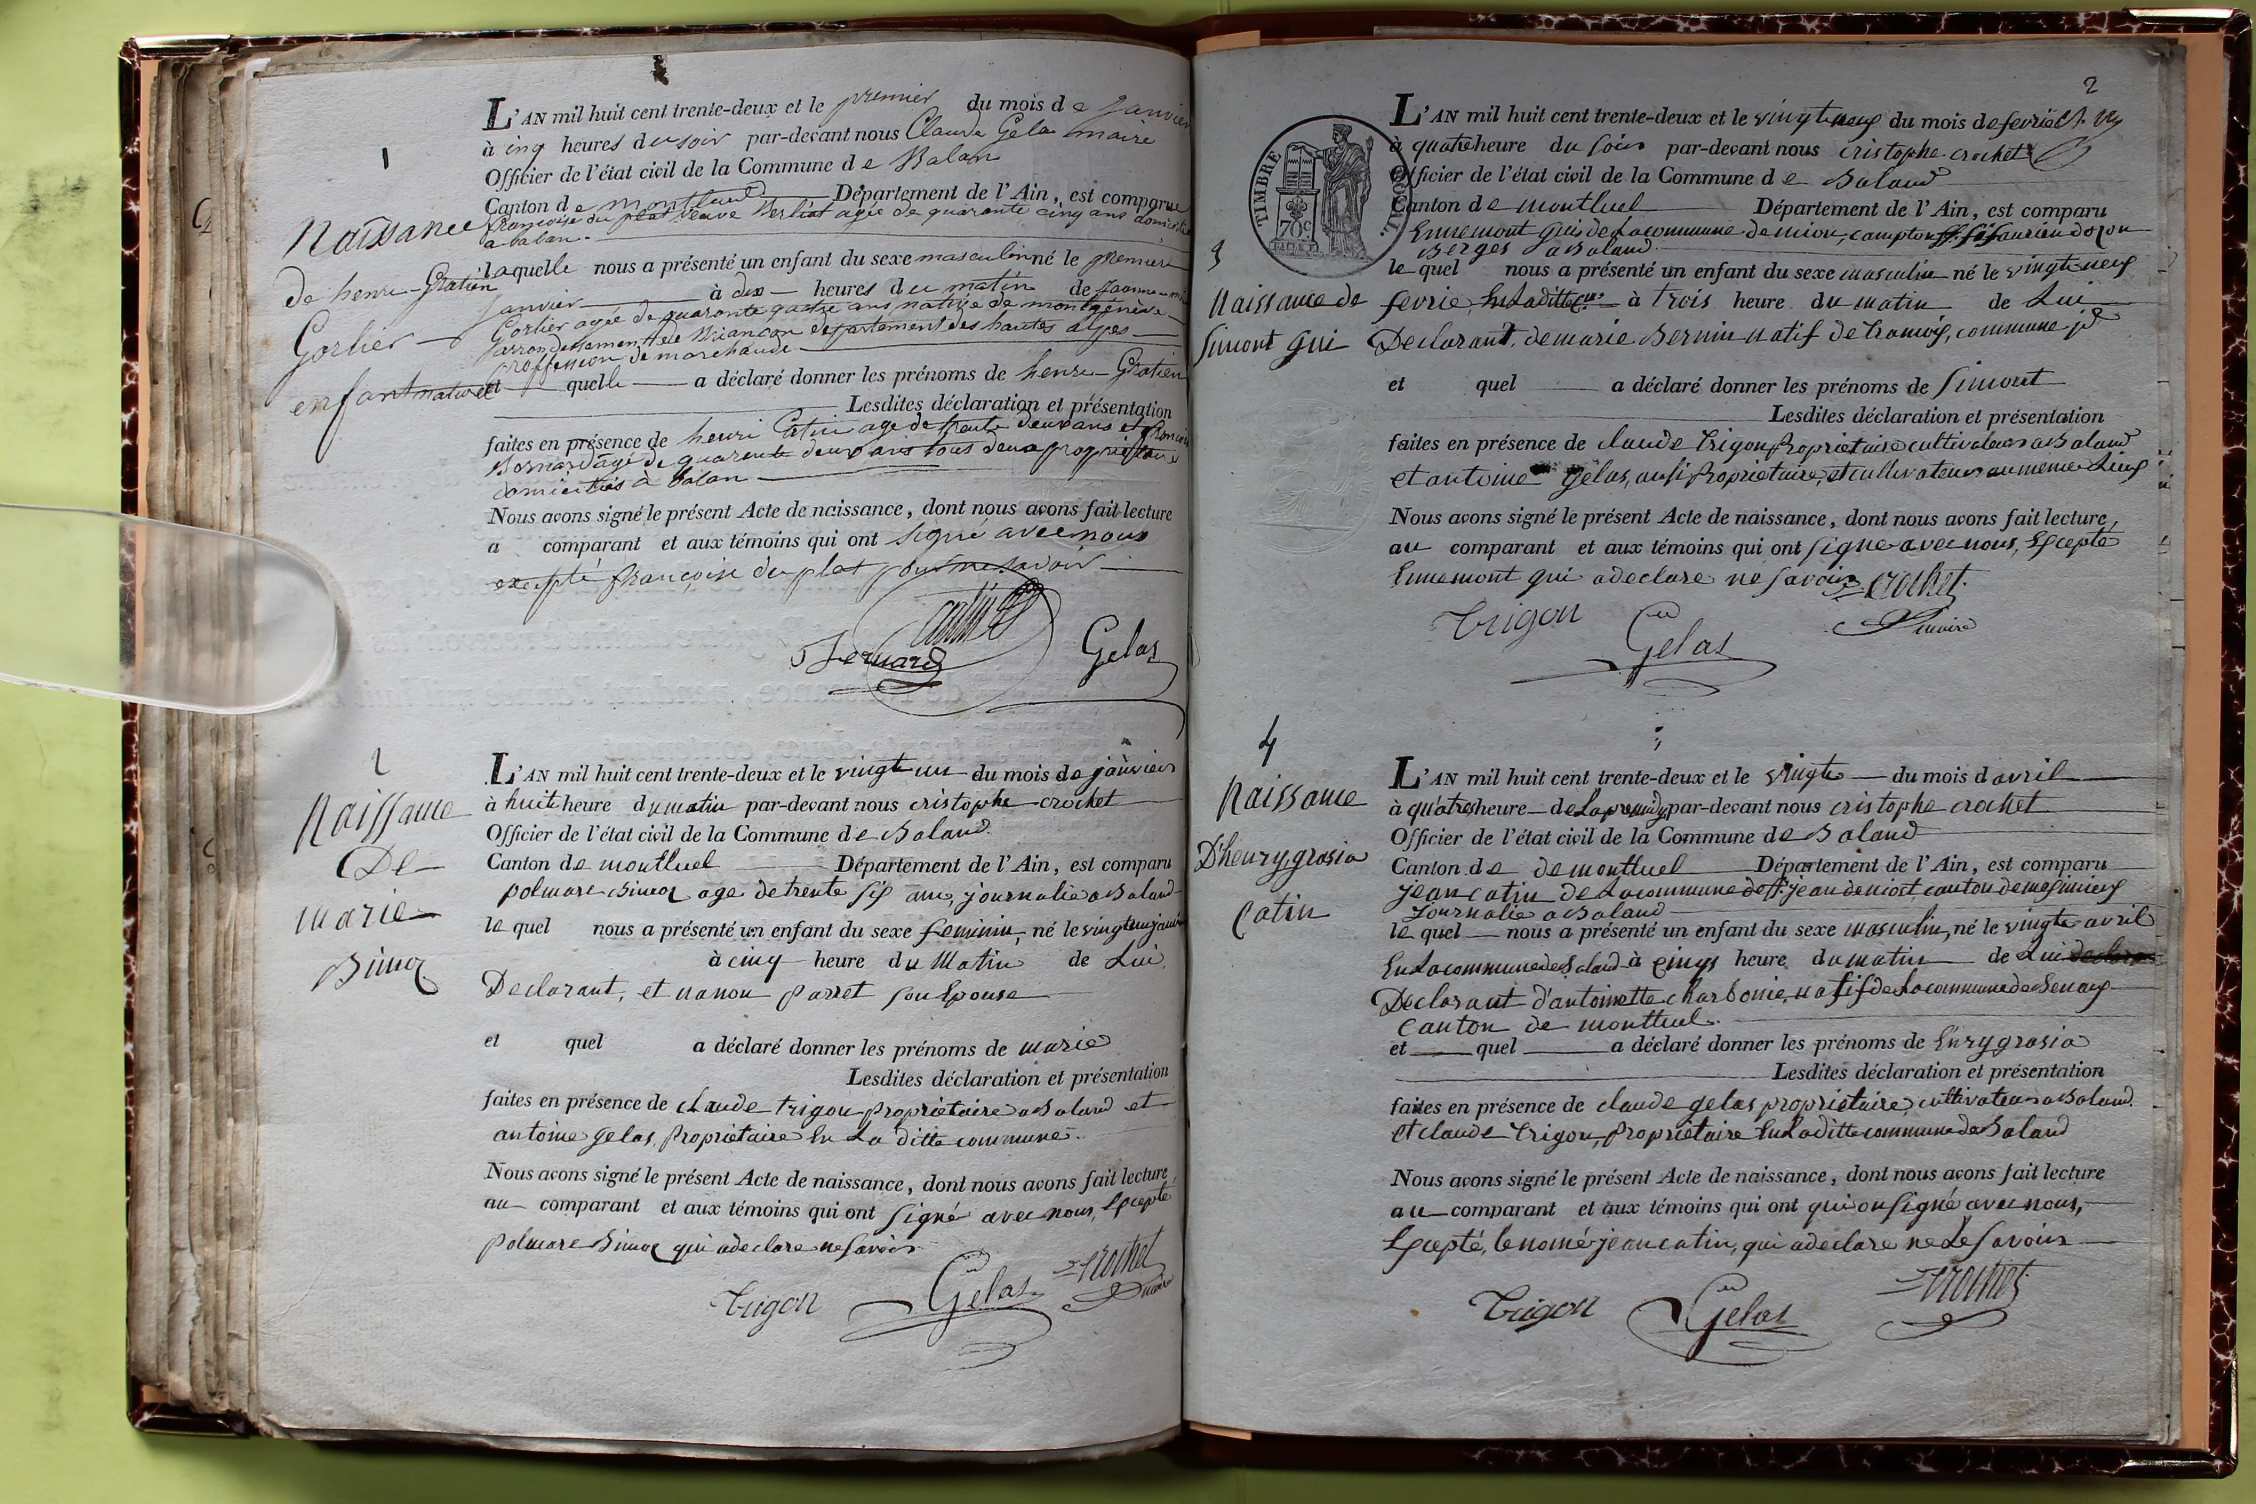 1
Naissance
de henri-Gratien
Gorlier
enfant naturel
L'AN mil huit cent trente-deux et le premier du mois de Janvier
à cinq heures du soir par-devant nous Claude Gelas maire
Officier de l'état civil de la Commune de Balan
Canton de montluel Département de l'Ain, est comparue
françoise du plat veuve Berliat agée de quarante cinq ans domiciliée
a balan
laquelle nous a présenté un enfant du sexe masculin né le premier
janvier à dix heures du matin de jeanne
Gorlier agée de quarante quatre ans native de montgenèvre
arrondissement de Briançon département des hautes alpes
proffession de marchande
et quelle a déclaré donner les prénoms de henri-Gratien
Lesdites déclaration et présentation
faites en présence de henri Catin age de trente deux ans et françois
Bernard âgé de quarente deux ans tous deux propriétaires
domiciliés à balan
Nous avons signé le présent Acte de naissance, dont nous avons fait lecture
a comparant et aux témoins qui ont signé avec nous
excepté françoise du plat pour ne savoir
Catin
Bernard
Gelas
2
Naissance
De
marie
Bimoz
L'AN mil huit cent trente-deux et le vingt un du mois de janvier
à huit heure du matin par-devant nous cristophe crochet
Officier de l'état civil de la Commune de Baland
Canton de montluel Département de l'Ain, est comparu
age de trente six ans, journalie a Baland
le quel nous a présenté un enfant du sexe feminin, né le vingt un janvie
à cinq heure du Matin de Lui
Declarant, et nanon parret son Epouse
et quel a déclaré donner les prénoms de marie
Lesdites déclaration et présentation
faites en présence de claude trigon propriétaire a Baland et
antoine gelas, propriétaire En La ditte commune.
Nous avons signé le présent Acte de naissance, dont nous avons fait lecture
au comparant et aux témoins qui ont signé avec nous, Excepté
qui a declare ne savoir
Trigon
Gelas
Crochet
maire
2
TIMBRE ROYAL
70c
3
Naissance de
Simont Gui
L'AN mil huit cent trente-deux et le vingt neuf du mois de fevrie
à quatre heure du soir par-devant nous cristophe crochet
Officier de l'état civil de la Commune de Baland
Canton de montluel Département de l'Ain, est comparu
Ennemont gui de La commune de mion, campton st. sifaurien dozon
Berges a Baland
le quel nous a présenté un enfant du sexe masculin né le vingt neuf
fevrie, En Laditte à trois heure du matin de Lui
Declarant, de marie Bernin natif de tramois, commune jd
et quel a déclaré donner les prénoms de simont
Lesdites déclaration et présentation
faites en présence de claude trigon propriétaire cultivateur a Baland
et antoine gelas, ausi propriétaire, et cultivateur au meme Lieux
Nous avons signé le présent Acte de naissance, dont nous avons fait lecture
au comparant et aux témoins qui ont signe avec nous, Excepté
Ennemont gui a declare ne savoir
Crochet
maire
Trigon
Gelas
4
Naissance
D'henry grasia
Catin
L'AN mil huit cent trente-deux et le vingte du mois d avril
à quatre heure de La premidy par-devant nous cristophe crochet
Officier de l'état civil de la Commune de Baland
Canton de demontluel Département de l'Ain, est comparu
jean catin de La commune de st. jean de niost, canton de meximieux
journalie a Baland
le quel nous a présenté un enfant du sexe masculin, né le vingte avril
En La commune de Baland à cinqs heure du matin de Lui
Declarant d'antoinette charbonie, natif de La commune de
Canton de montluel
et quel a déclaré donner les prénoms de Enry grasia
Lesdites déclaration et présentation
faites en présence de claude gelas propriétaire, cultivateur a Baland.
et claude trigon, propriétaire En Laditte commune de Baland
Nous avons signé le présent Acte de naissance, dont nous avons fait lecture
au comparant et aux témoins qui ont qui on signé avec nous,
Excepté, le nomé jean catin, qui a declare ne Le savoir
Trigon
Gelas
Crochet